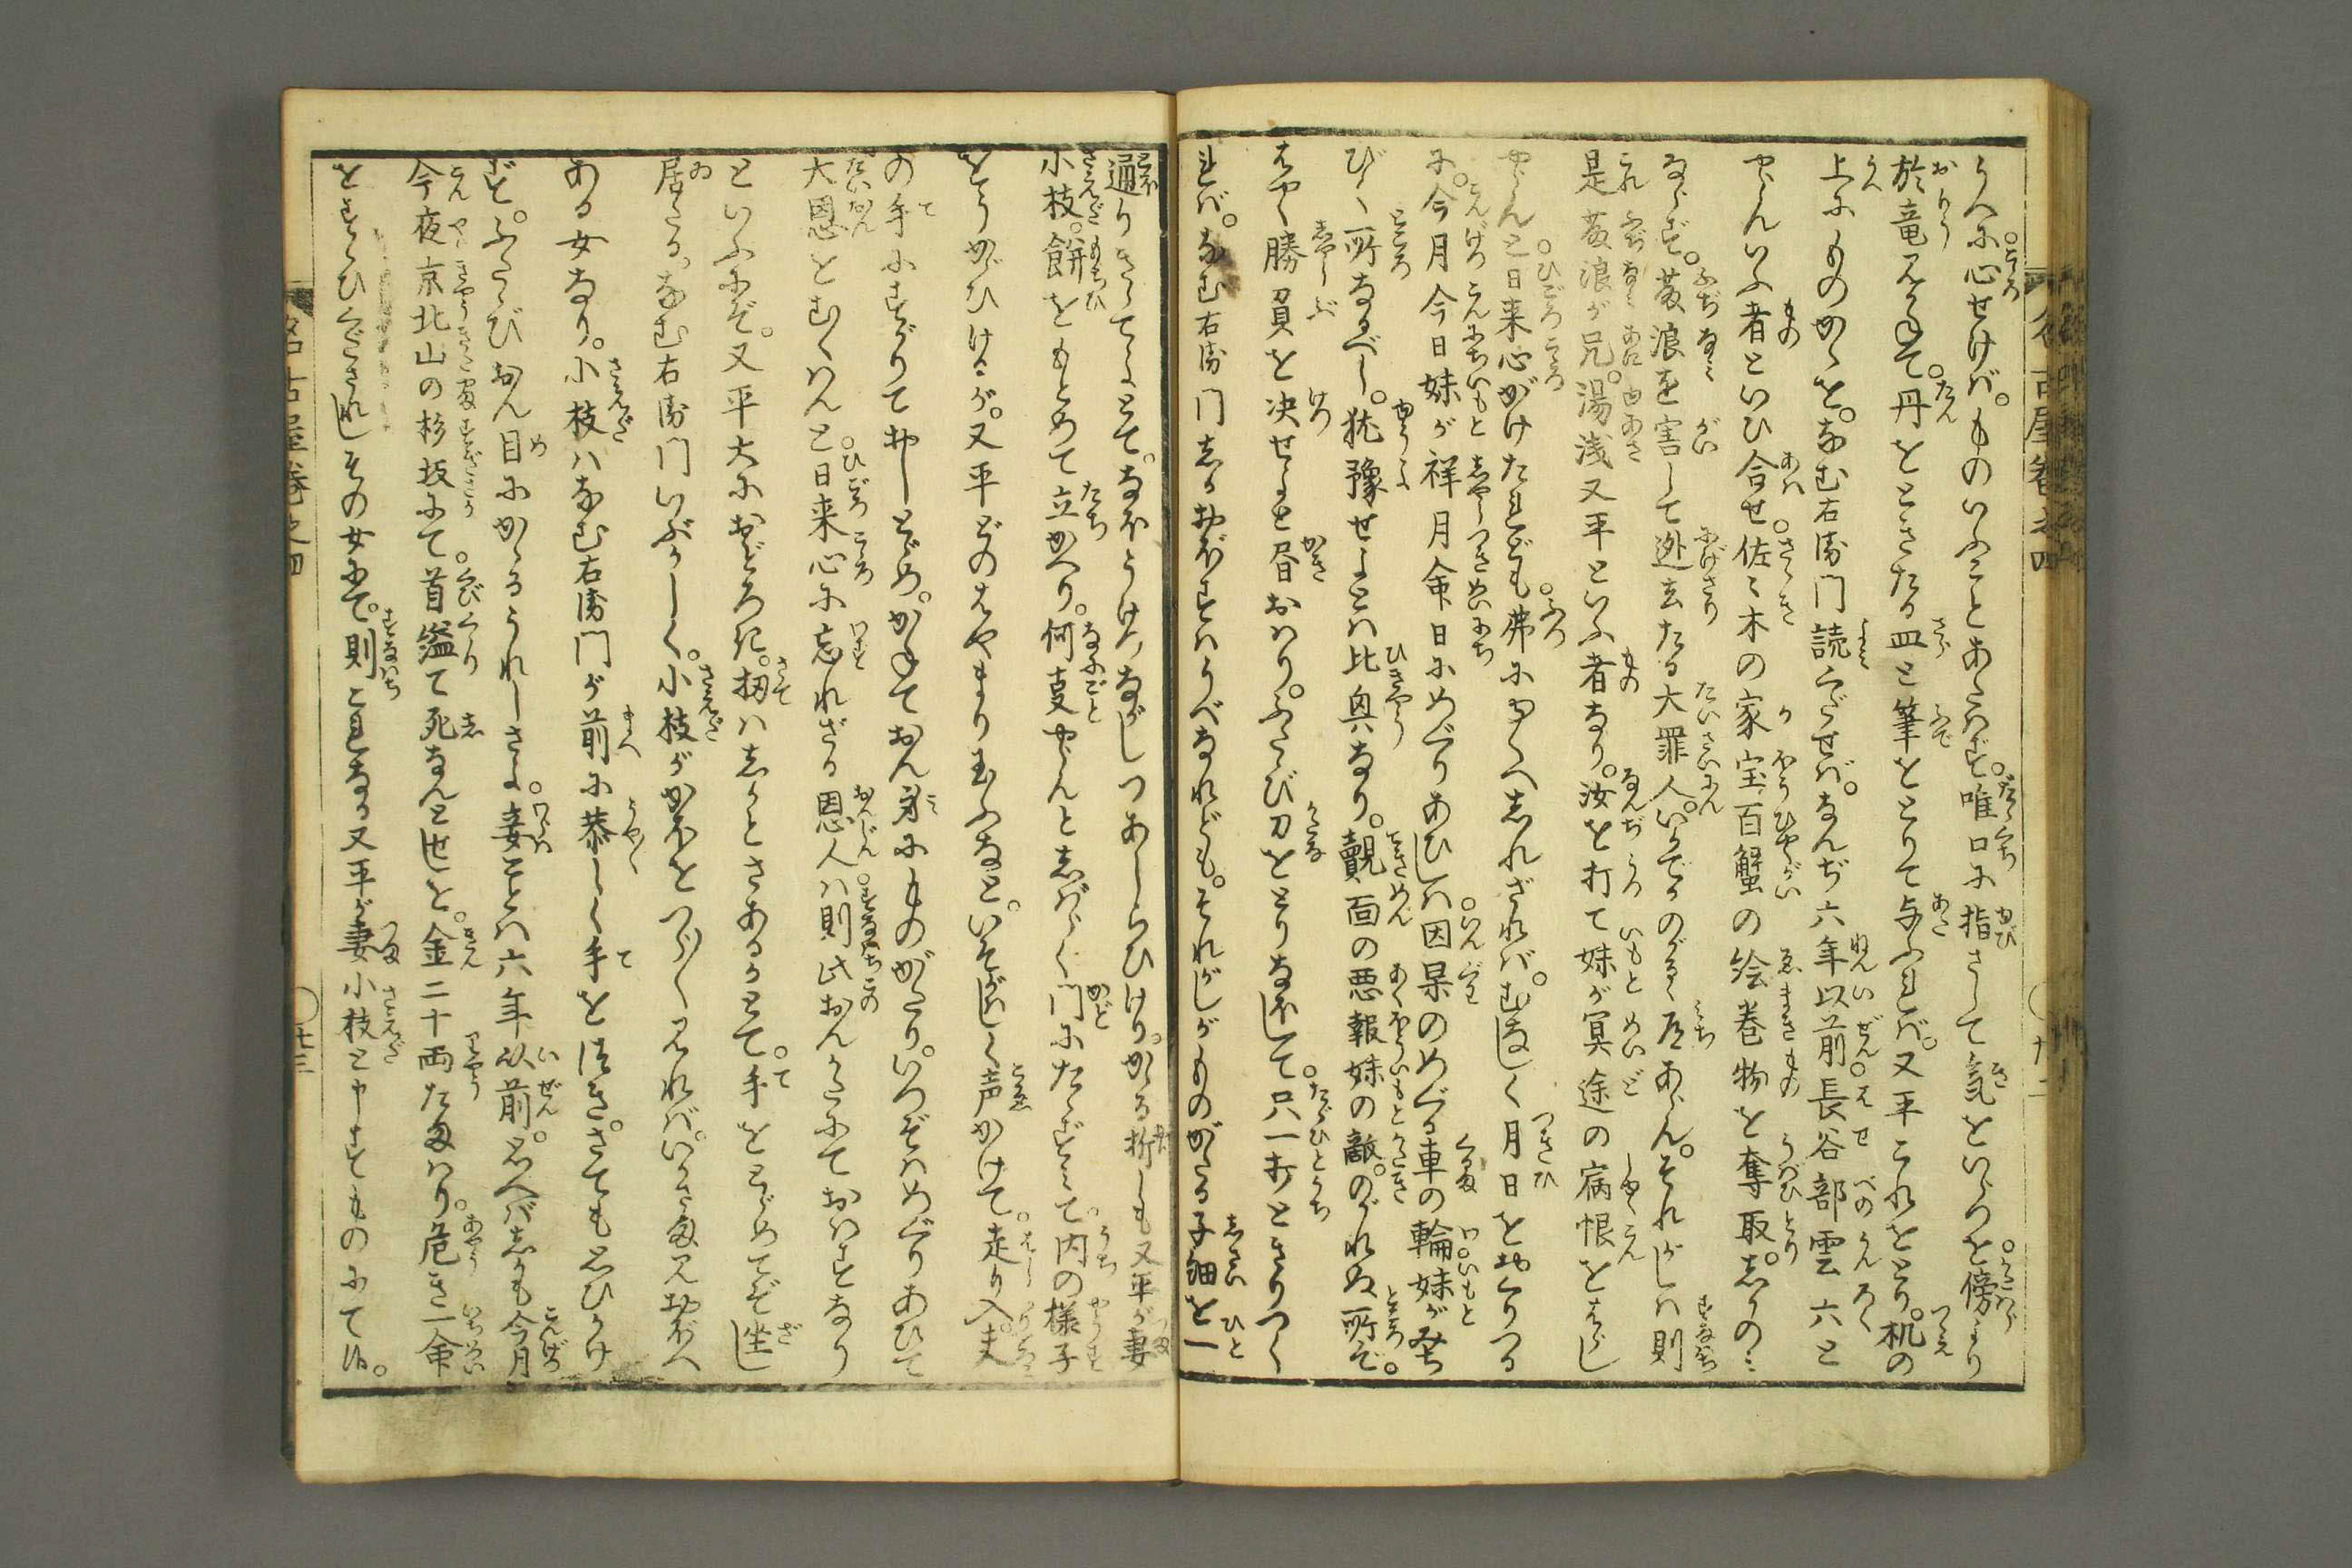 うへに心せけば。ものいふことあたはず。唯口に指さして気をいらつを。傍より
於竜見かねて。丹をときたる皿と筆をとりて与ふれば。又平これをとり。机の
上にものかくを。なむ右衛門読くだせば。なんぢ六年以前。長谷部雲六と
やらんいふ者といひ合せ。佐々木の家宝百蟹の絵巻物を奪取。しかのミ
ならず。藤浪を害して迯去たる大罪人。いかでかのがるゝ道あらん。それがしハ則
是藤浪が兄。湯浅又平といふ者なり。汝を打て妹が冥途の病恨をはらし
やらんと。日来心がけたれども。弗にゆくへしれざれば。むなしく月日をおくりつる
に。今月今日妹が祥月命日にめぐりあひしハ。因果のめぐる車の輪。妹がみち
びく所なるべし。猶予せよとハ比興なり。覿面の悪報妹の敵。のがれぬ所ぞ。
はやく勝負を决せよと昼おハり。ふたゝび刀をとりなほして。只一打ときりつく
れば。なむ右衛門しかおぼすハうべなれども。それがしがものがたる子細を一
通りきゝてよとて。なほうけながしつあしらひけり。かゝる折しも又平が妻
小枝。餅をもとめて立かへり。何事やらんとしばらく門にたゝずミて。内の様子
をうかゞひけるが。又平どのはやまり玉ふなと。いそがはしく声かけて。走り入。夫
の手にすがりておしとゞめ。かねておん身にものがたり。いつぞハめぐりあひて
大恩をむくハんと。日来心に忘れざる恩人ハ則此おんかたにておハすなり
といふにぞ。又平大におどろき。扨ハしかとさあるかとて。手をとゞめてぞ坐し
居たる。なむ右衛門いぶかしく。小枝がかほをつら〱見れば。いかさま見おぼへ
ある女なり。小枝ハなむ右衛門が前に恭しく手を注き。さても思ひかけ
ず。ふたゝびおん目にかゝるうれしさよ。妾ことハ六年以前。思へばしかも今月
今夜京北山の杉坂にて。首縊て死なんと世しを。金二十両たまハり。危き一命
をすくひくだされしその女にて。則これなる又平が妻小枝と申すものにて候。
名古屋巻之四
名古屋巻之四